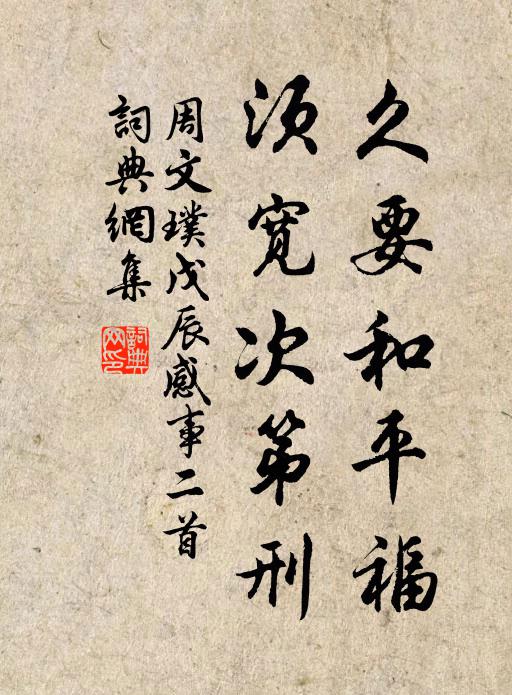 久要和平福
須寬次第刑
周文璞戊辰感事二首
詞典網集
詞典網印